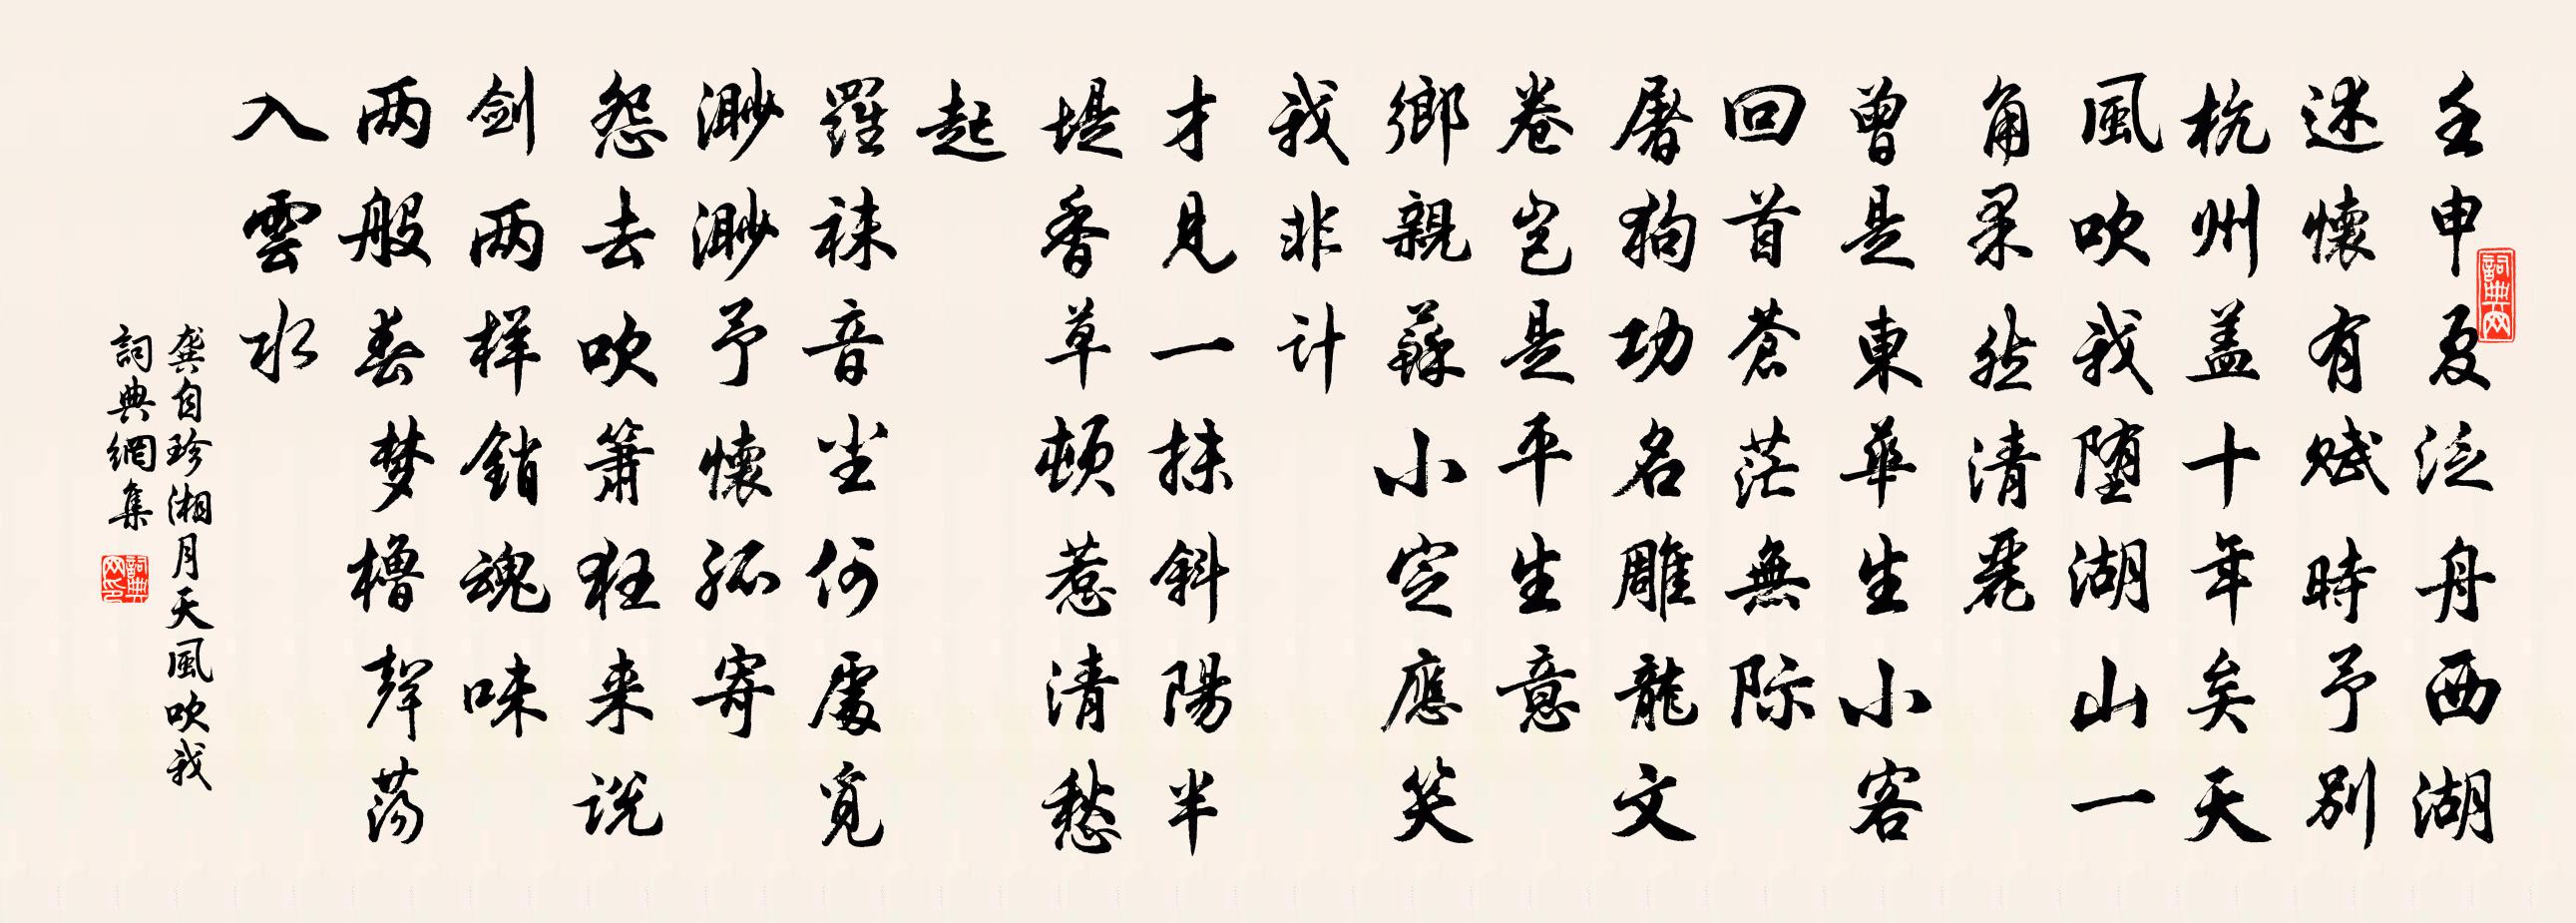 詞典网
壬申夏泛舟西湖
述懷有賦時予別
杭州盖十年矣天
風吹我堕湖山一
角果然清麗
曾是東華生小客
回首蒼茫無际
屠狗功名雕龍文
卷豈是平生意
鄉親蘇小定應笑
我非计
才見一抹斜陽半
堤香草頓惹清愁
起
羅袜音尘何處覓
渺渺予懷孤寄
怨去吹箫狂来说
剑两样銷魂味
两般春梦橹聲荡
入雲水
龚自珍湘月天風吹我
詞典網集
詞典网印